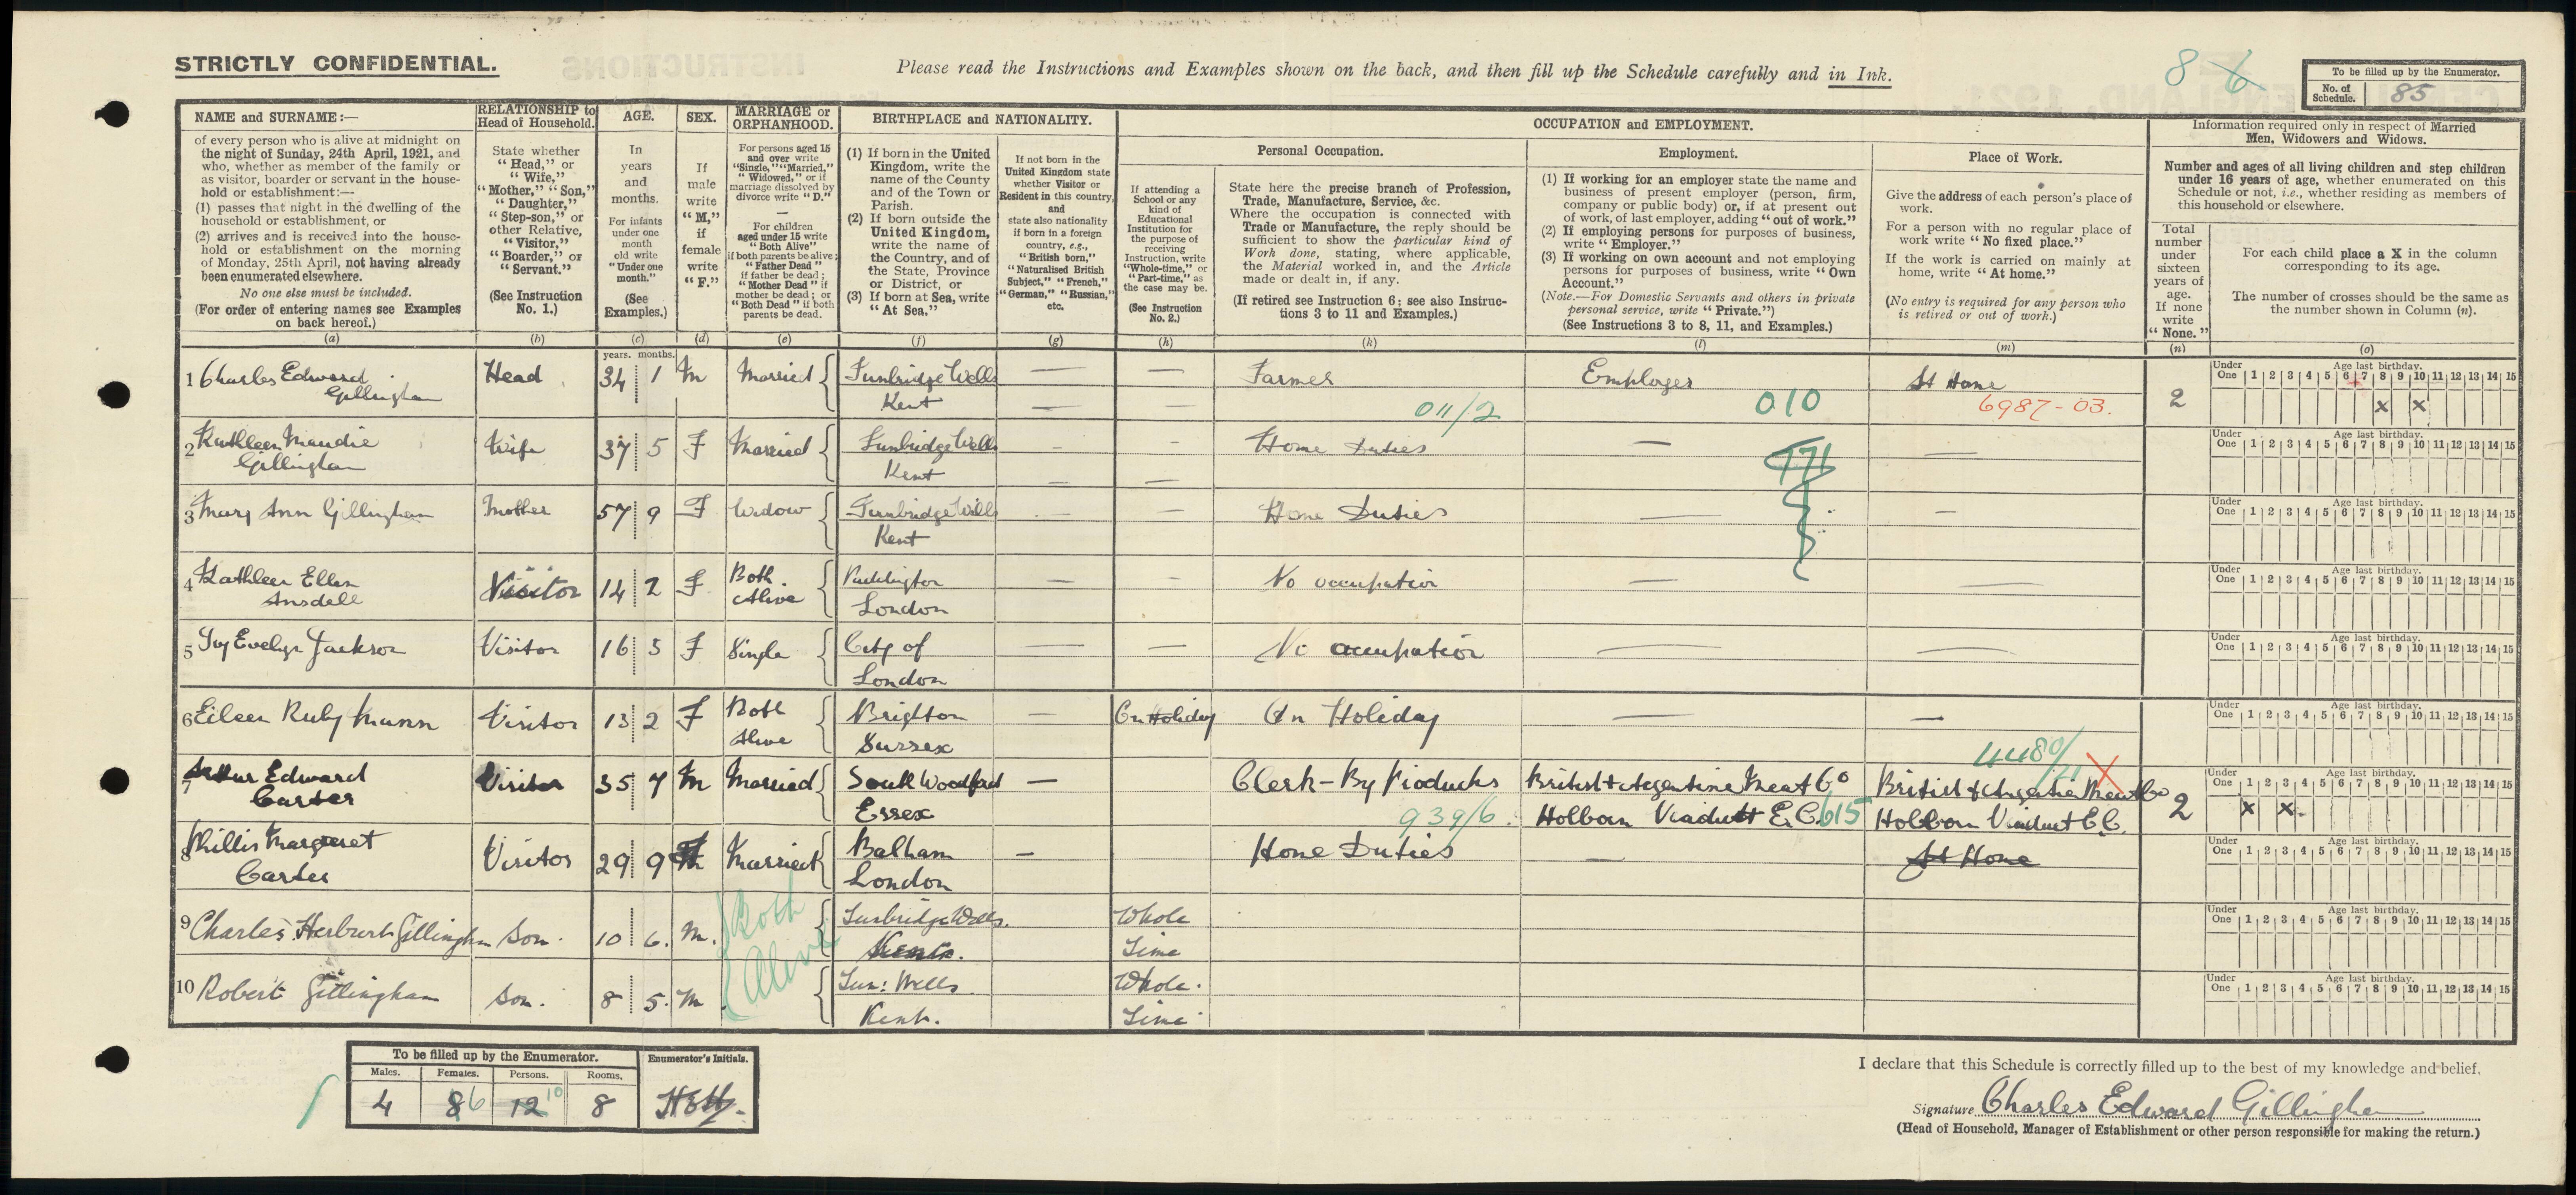 STRICTLY CONFIDENTIAL.
Please read the Instructions and Examples shown on the back, and then fill up the Schedule carefully and in Ink.
8 6
To be filled up by the Enumerator.
No. of Schedule. 85
NAME and SURNAME:—
of every person who is alive at midnight on
the night of Sunday, 24th April, 1921, and
who, whether as member of the family or
as visitor, boarder or servant in the house-
hold or establishment:—
(1) passes that night in the dwelling of the
household or establishment, or
(2) arrives and is received into the house-
hold or establishment on the morning
of Monday, 25th April, not having already
been enumerated elsewhere.
No one else must be included.
(For order of entering names see Examples
on back hereof.)
(a)
RELATIONSHIP to
Head of Household.
State whether
"Head," or
"Wife,"
"Mother," "Son,"
"Daughter,"
"Step-son," or
other Relative,
"Visitor,"
"Boarder," or
"Servant."
(See Instruction
No. 1.)
(b)
AGE.
In
years
and
months.
For infants
under one
month
old write
"Under one
month."
(See
Examples.)
(c)
years. months.
SEX.
If
male
write
"M,"
if
female
write
"F."
(d)
MARRIAGE or
ORPHANHOOD.
For persons aged 15
and over write
"Single," "Married,"
"Widowed," or if
marriage dissolved by
divorce write "D."
—
For children
aged under 15 write
"Both Alive"
if both parents be alive;
"Father Dead"
if father be dead;
"Mother Dead" if
mother be dead; or
"Both Dead" if both
parents be dead.
(e)
BIRTHPLACE and NATIONALITY.
(1) If born in the United
Kingdom, write the
name of the County
and of the Town or
Parish.
(2) If born outside the
United Kingdom,
write the name of
the Country, and of
the State, Province
or District, or
(3) If born at Sea, write
"At Sea."
(f)
If not born in the
United Kingdom state
whether Visitor or
Resident in this country,
and
state also nationality
if born in a foreign
country, e.g.,
"British born,"
"Naturalised British
Subject," "French,"
"German," "Russian,"
etc.
(g)
OCCUPATION and EMPLOYMENT.
If attending a
School or any
kind of
Educational
Institution for
the purpose of
receiving
Instruction, write
"Whole-time," or
"Part-time," as
the case may be.
(See Instruction
No. 2.)
(h)
Personal Occupation.
State here the precise branch of Profession,
Trade, Manufacture, Service, &c.
Where the occupation is connected with
Trade or Manufacture, the reply should be
sufficient to show the particular kind of
Work done, stating, where applicable,
the Material worked in, and the Article
made or dealt in, if any.
(If retired see Instruction 6; see also Instruc-
tions 3 to 11 and Examples.)
(k)
Employment.
(1) If working for an employer state the name and
business of present employer (person, firm,
company or public body) or, if at present out
of work, of last employer, adding "out of work."
(2) If employing persons for purposes of business,
write "Employer."
(3) If working on own account and not employing
persons for purposes of business, write "Own
Account."
(Note.—For Domestic Servants and others in private
personal service, write "Private.")
(See Instructions 3 to 8, 11, and Examples.)
(l)
Place of Work.
Give the address of each person's place of
work.
For a person with no regular place of
work write "No fixed place."
If the work is carried on mainly at
home, write "At home."
(No entry is required for any person who
is retired or out of work.)
(m)
Information required only in respect of Married
Men, Widowers and Widows.
Number and ages of all living children and step children
under 16 years of age, whether enumerated on this
Schedule or not, i.e., whether residing as members of
this household or elsewhere.
Total
number
under
sixteen
years of
age.
If none
write
"None."
(n)
For each child place a X in the column
corresponding to its age.
The number of crosses should be the same as
the number shown in Column (n).
(o)
Under One Age last birthday. 1 2 3 4 5 6 7 8 9 10 11 12 13 14 15
1 Charles Edward Gillingham Head 34 1 M Married Tunbridge Wells Kent — — Farmer 011/2 Employer 010 At Home 6987-03. 2 x x
2 Kathleen Maudie Gillingham Wife 37 5 F Married Tunbridge Wells Kent — — Home Duties — 971 —
3 Mary Ann Gillingham Mother 57 9 F Widow Tunbridge Wells Kent — — Home Duties — —
4 Kathleen Ellen Ansdell Visitor 14 2 F Both Alive Paddington London — — No occupation — —
5 Ivy Evelyn Jackson Visitor 16 5 F Single City of London — — No occupation — —
6 Eileen Ruby Mann Visitor 13 2 F Both Alive Brighton Sussex — On Holiday On Holiday — —
7 Arthur Edward Carter Visitor 35 7 M Married South Woodford Essex — Clerk - By Products 939/6 British & Argentine Meat Co Holborn Viaduct E.C. 615 4480/11 X British & Argentine Meat Co Holborn Viaduct E.C. 2 x x
8 Phillis Margaret Carter Visitor 29 9 F Married Balham London — Home Duties — At Home
9 Charles Herbert Gillingham Son. 10 6. M. Both Tunbridge Wells. Kent. Whole Time
10 Robert Gillingham Son. 8 5. M. Alive Tun: Wells Kent. Whole. Time
To be filled up by the Enumerator.
Males. Females. Persons. Rooms.
4 8 6 12 10 8
Enumerator's Initials.
I declare that this Schedule is correctly filled up to the best of my knowledge and belief.
Signature Charles Edward Gillingham
(Head of Household, Manager of Establishment or other person responsible for making the return.)